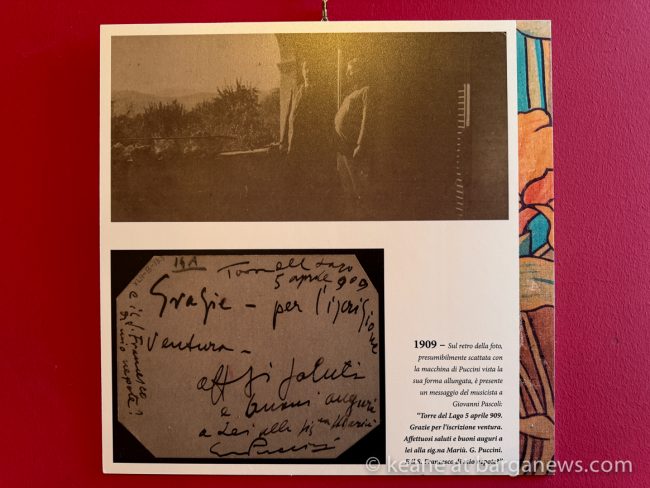 Torre del Lago
5 aprile 909
Grazie - per l'iscrizione
ventura -
aff.si saluti
e buoni auguri
a Lei alla sig.na Mariù
G. Puccini
e il S. Francesco
di mio nipote?
1909 – Sul retro della foto,
presumibilmente scattata con
la macchina di Puccini vista la
sua forma allungata, è presente
un messaggio del musicista a
Giovanni Pascoli:
"Torre del Lago 5 aprile 909.
Grazie per l'iscrizione ventura.
Affettuosi saluti e buoni auguri a
lei alla sig.na Mariù. G. Puccini.
E il S. Francesco di mio nipote?"
© keane at barganews.com